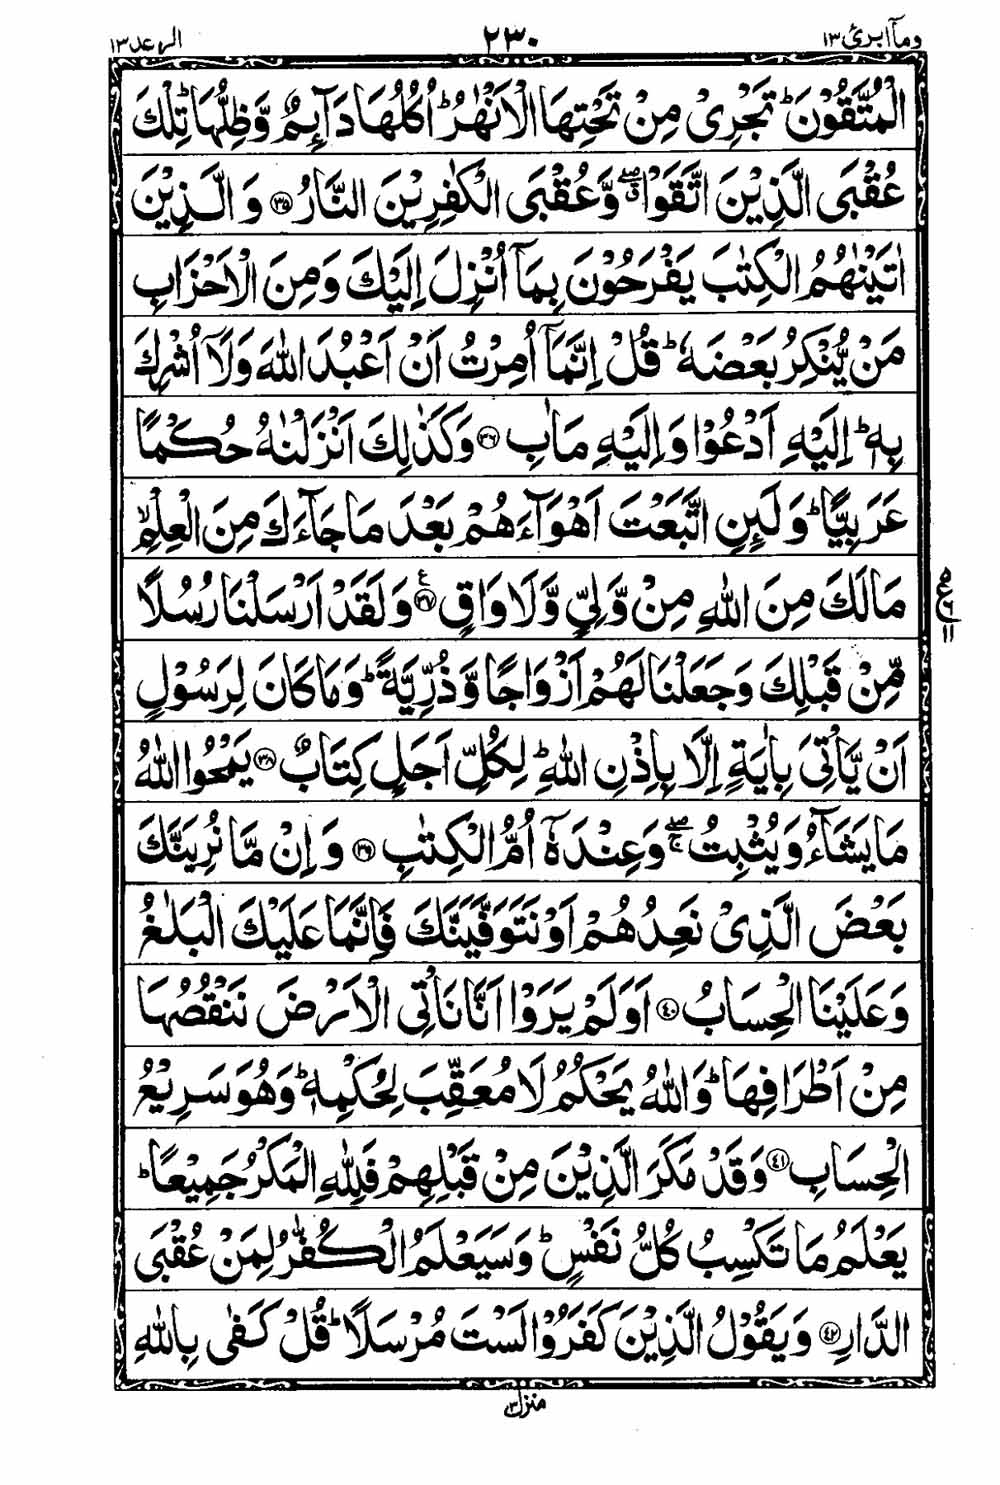 وما ابرئ ١٣ ٢٣٠ الرعد ١٣
الْمُتَّقُوْنَ ؕ تَجْرِیْ مِنْ تَحْتِهَا الْاَنْهٰرُ ؕ اُكُلُهَا دَآىِٕمٌ وَّ ظِلُّهَا ؕ تِلْكَ
عُقْبَی الَّذِیْنَ اتَّقَوْا ۖۗ وَّ عُقْبَی الْكٰفِرِیْنَ النَّارُ ﴿۳۵﴾ وَ الَّذِیْنَ
اٰتَیْنٰهُمُ الْكِتٰبَ یَفْرَحُوْنَ بِمَاۤ اُنْزِلَ اِلَیْكَ وَ مِنَ الْاَحْزَابِ
مَنْ یُّنْكِرُ بَعْضَهٗ ؕ قُلْ اِنَّمَاۤ اُمِرْتُ اَنْ اَعْبُدَ اللّٰهَ وَ لَاۤ اُشْرِكَ
بِهٖ ؕ اِلَیْهِ اَدْعُوْا وَ اِلَیْهِ مَاٰبِ ﴿۳۶﴾ وَ كَذٰلِكَ اَنْزَلْنٰهُ حُكْمًا
عَرَبِیًّا ؕ وَ لَىِٕنِ اتَّبَعْتَ اَهْوَآءَهُمْ بَعْدَ مَا جَآءَكَ مِنَ الْعِلْمِ ۙ
مَا لَكَ مِنَ اللّٰهِ مِنْ وَّلِیٍّ وَّ لَا وَاقٍ ﴿۳۷﴾ ع وَ لَقَدْ اَرْسَلْنَا رُسُلًا
مِّنْ قَبْلِكَ وَ جَعَلْنَا لَهُمْ اَزْوَاجًا وَّ ذُرِّیَّةً ؕ وَ مَا كَانَ لِرَسُوْلٍ
اَنْ یَّاْتِیَ بِاٰیَةٍ اِلَّا بِاِذْنِ اللّٰهِ ؕ لِكُلِّ اَجَلٍ كِتَابٌ ﴿۳۸﴾ یَمْحُوا اللّٰهُ
مَا یَشَآءُ وَ یُثْبِتُ ۖۚ وَ عِنْدَهٗۤ اُمُّ الْكِتٰبِ ﴿۳۹﴾ وَ اِنْ مَّا نُرِیَنَّكَ
بَعْضَ الَّذِیْ نَعِدُهُمْ اَوْ نَتَوَفَّیَنَّكَ فَاِنَّمَا عَلَیْكَ الْبَلٰغُ
وَ عَلَیْنَا الْحِسَابُ ﴿۴۰﴾ اَوَ لَمْ یَرَوْا اَنَّا نَاْتِی الْاَرْضَ نَنْقُصُهَا
مِنْ اَطْرَافِهَا ؕ وَ اللّٰهُ یَحْكُمُ لَا مُعَقِّبَ لِحُكْمِهٖ ؕ وَ هُوَ سَرِیْعُ
الْحِسَابِ ﴿۴۱﴾ وَ قَدْ مَكَرَ الَّذِیْنَ مِنْ قَبْلِهِمْ فَلِلّٰهِ الْمَكْرُ جَمِیْعًا ؕ
یَعْلَمُ مَا تَكْسِبُ كُلُّ نَفْسٍ ؕ وَ سَیَعْلَمُ الْكُفّٰرُ لِمَنْ عُقْبَی
الدَّارِ ﴿۴۲﴾ وَ یَقُوْلُ الَّذِیْنَ كَفَرُوْا لَسْتَ مُرْسَلًا ؕ قُلْ كَفٰی بِاللّٰهِ
منزل ٣